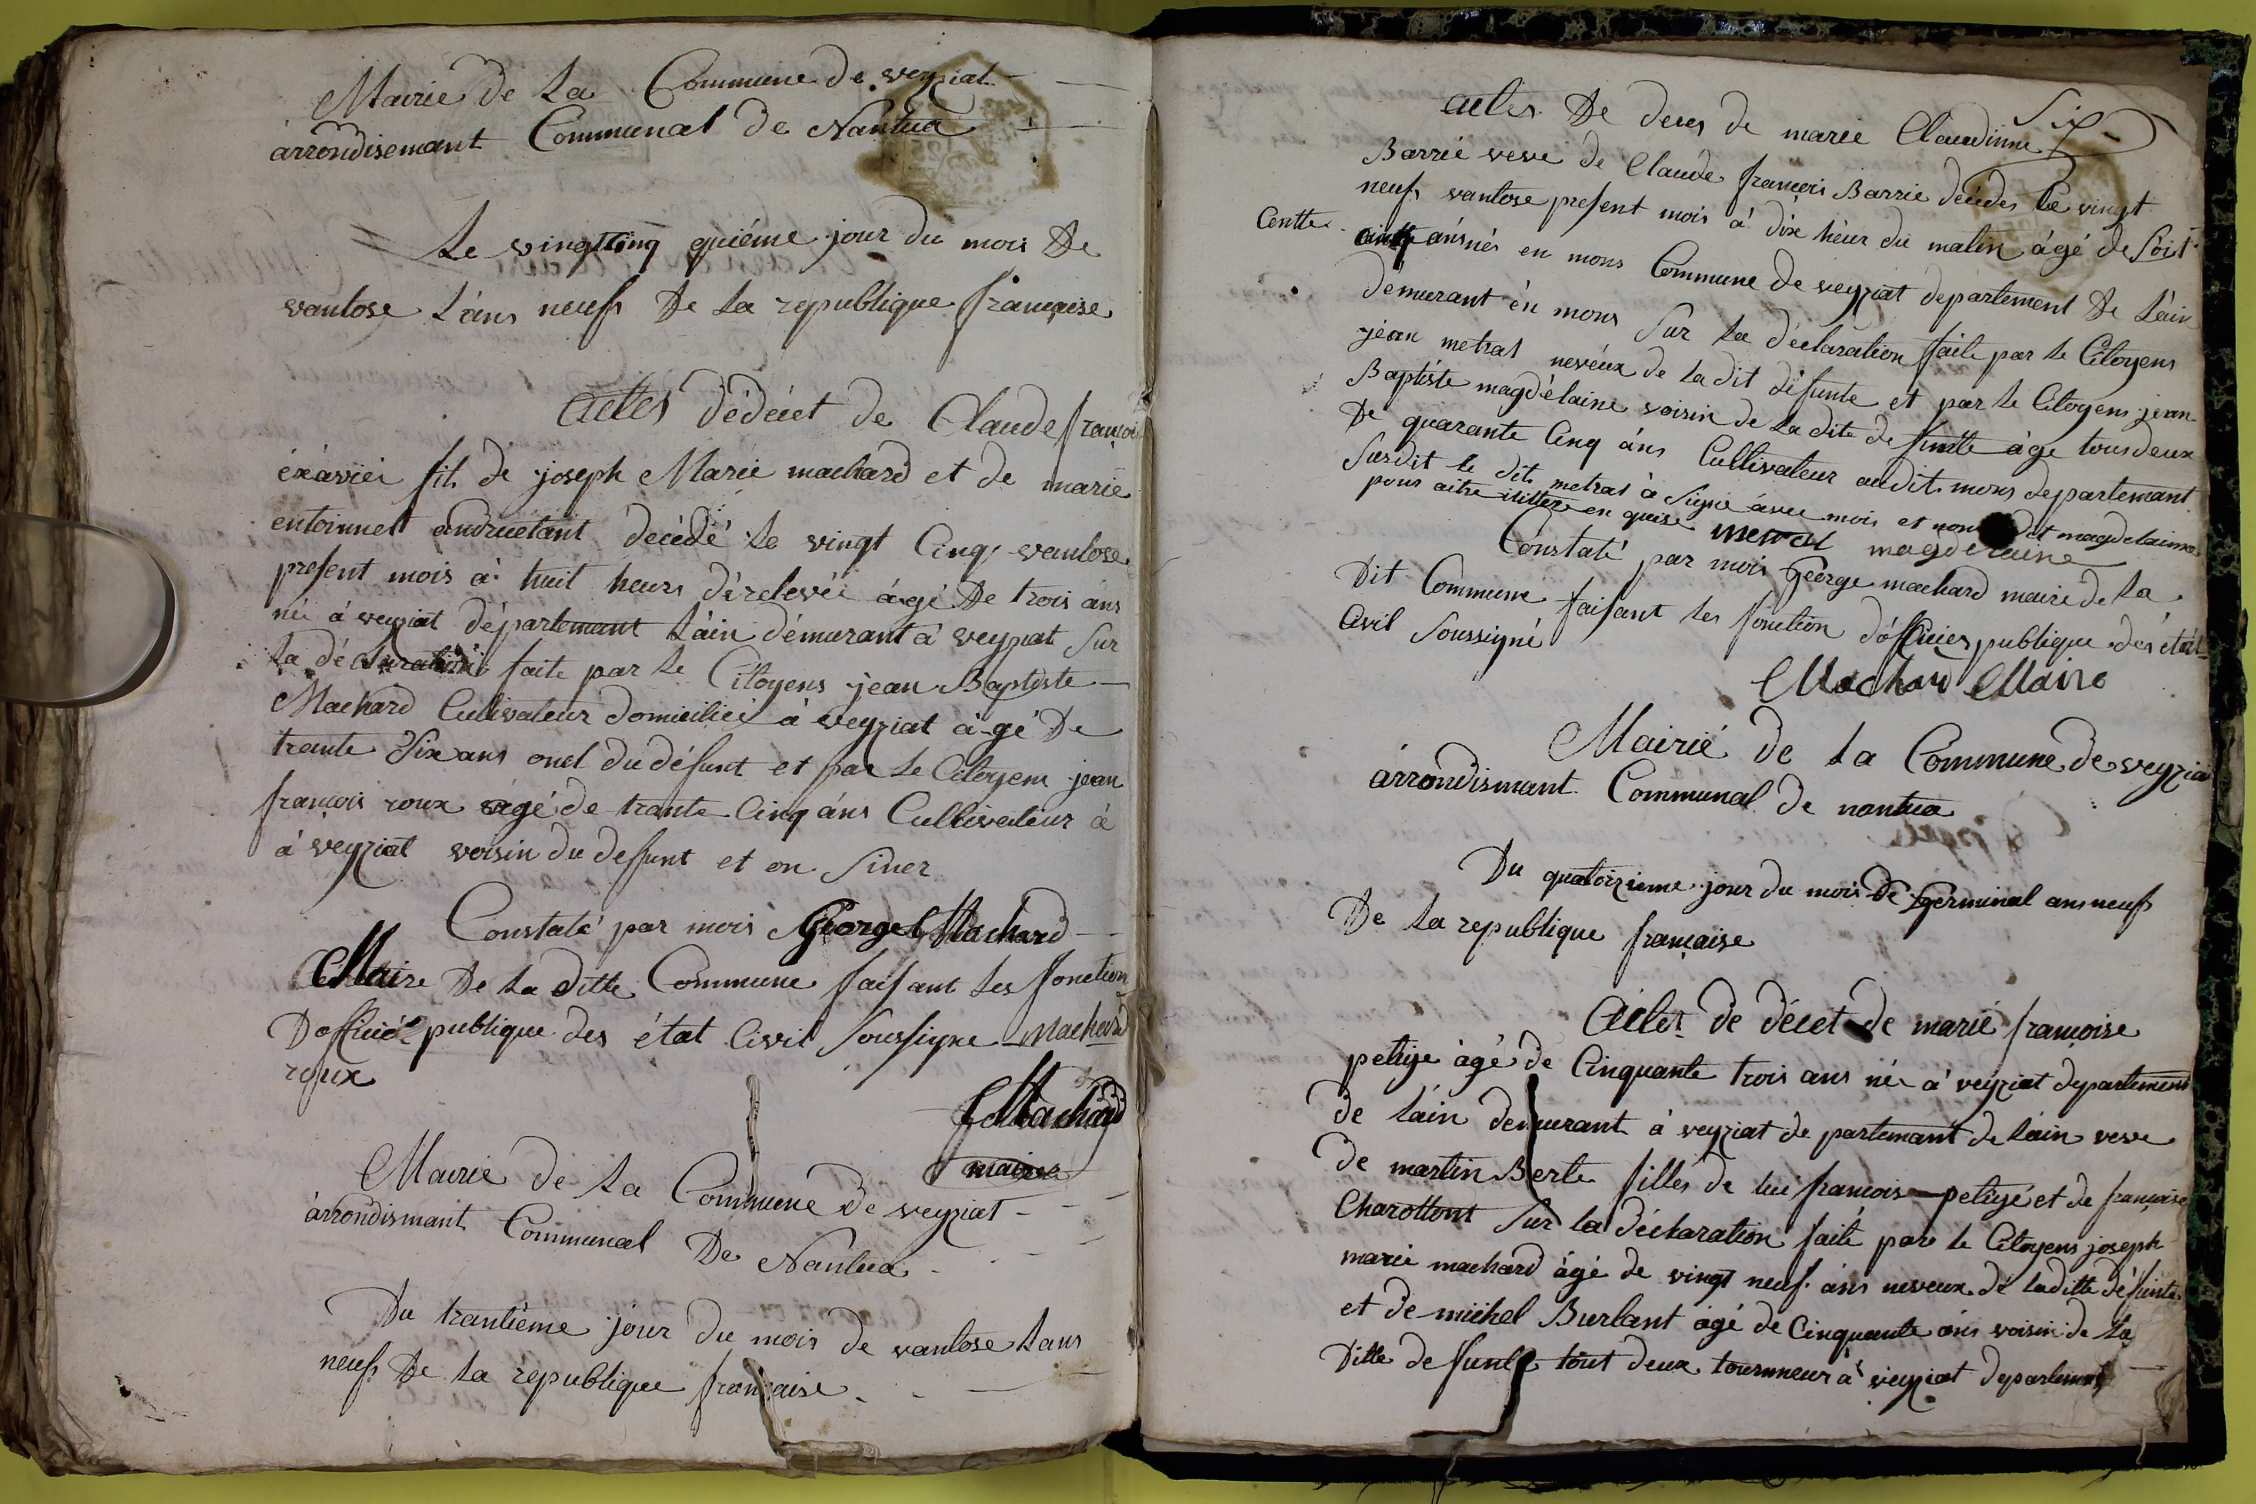 Mairie de la Commune de veyziat
arrondisemant Communal de Nantua
Le vingtcinq quiéme jour du mois De
vantose l'áns neufs De la republique française
actes dédécet de Claude françois
éxávier fils de joseph Marie machard et de marie
entoinnett andruetant décédé le vingt Cinq vantose
present mois à huit heurs dérelevée ágé De trois áns
né à veyziat département l'áin démurant à veyziat sur
la déclaration faite par le Citoyens jean Baptiste
Machard Culivateur domicilié à veyziat à gé De
trante Six ans oncl du défunt et par le Citoyens jean
françois roux ágé de trante Cinq áns Cultivateur à
à veyziat voisin du defunt et on Siner
Constaté par mois George Machard
Maire De la ditte Commune faisant les fonction
Dofficié publique des état Civil Soussigne Machard
roux
Machard
maire
Mairie de la Commune De veyziat
àrrondismant Communal De Nantua
Du trantiéme jour du mois de vantose l'ans
neufs De la republique française
Six
actes De deces de marie Claudinne
Barrié veve de Claude françois Barrie décédes le vingt
neufs vantose present mois à dix héur du matin ágé de Soit
Centte ánsnés en mons Commune de veyziat département De l'áin
démurant én mons Sur la déclaration faite par le Citoyens
jéan metral neveux de la dit défunte et par le Citoyens jean
Baptiste magdélaine voisin de la dite de funtte áge tousdeux
De quarante Cinq áns Cultivateur audit mons departemant
susdit le dit metral à Signé ávec mois et non dit magdelainne
pour aitre ilitter en quise metral magdelaine
Constaté par mois george machard maire de la
Dit Commune faisant les fonction d'óffficier publique des étát
Civil Soussigné
Machard Maire
Mairié de la Commune de veyziat
árrondismant Communal de nantua
Du quatorzieme jour du mois de germinal ans neufs
De la republique française
Actes de décet de marié françoise
petige àgé de Cinquante trois ans née à veyziat departement
de l'áin demurant à veyziat de partemant de l'áin veve
de martin Berte filles de luc françois petigé et de françoise
Charottont Sur la déclaration faité par le Citoyens joseph
marie machard ágé de vingt neuf áns neveux dé laditte défunte
et de michel Burlant ágé de Cinquante áns voisin de la
Ditte de funte tout deux tournneur à veyziat departement